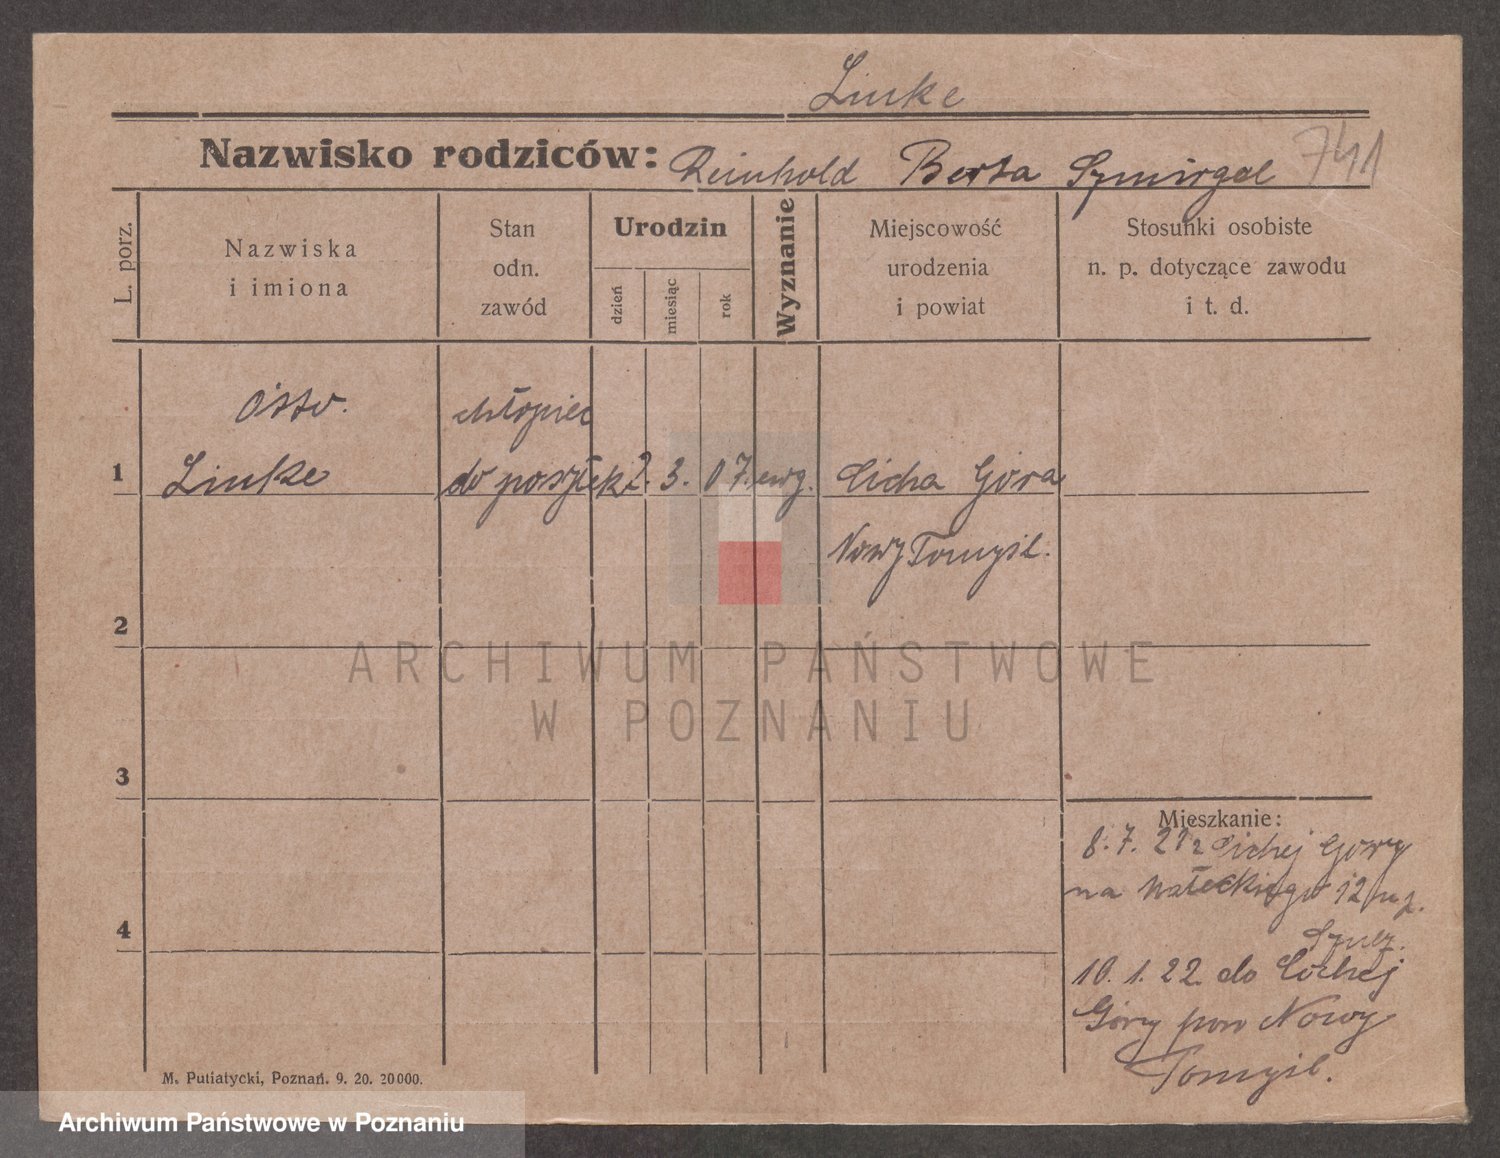 Linke
Nazwisko rodziców: Reinhold Berta Szmirgel 741
L. porz.
Nazwiska
i imiona
Stan
odn.
zawód
Urodzin
dzień
miesiąc
rok
Wyznanie
Miejscowość
urodzenia
i powiat
Stosunki osobiste
n. p. dotyczące zawodu
i t. d.
Otto. chłopiec
1 Linke do posyłek 2. 3. 07. ewg. Cicha Góra
Nowy Tomyśl.
2
ARCHIWUM PAŃSTWOWE
W POZNANIU
3
Mieszkanie:
8. 7. 21 z Cichej Góry
na 12
4
10. 1. 22. do Cichej
Góry pow Nowy
Tomyśl.
M. Putiatycki, Poznań. 9. 20. 20000.
Archiwum Państwowe w Poznaniu